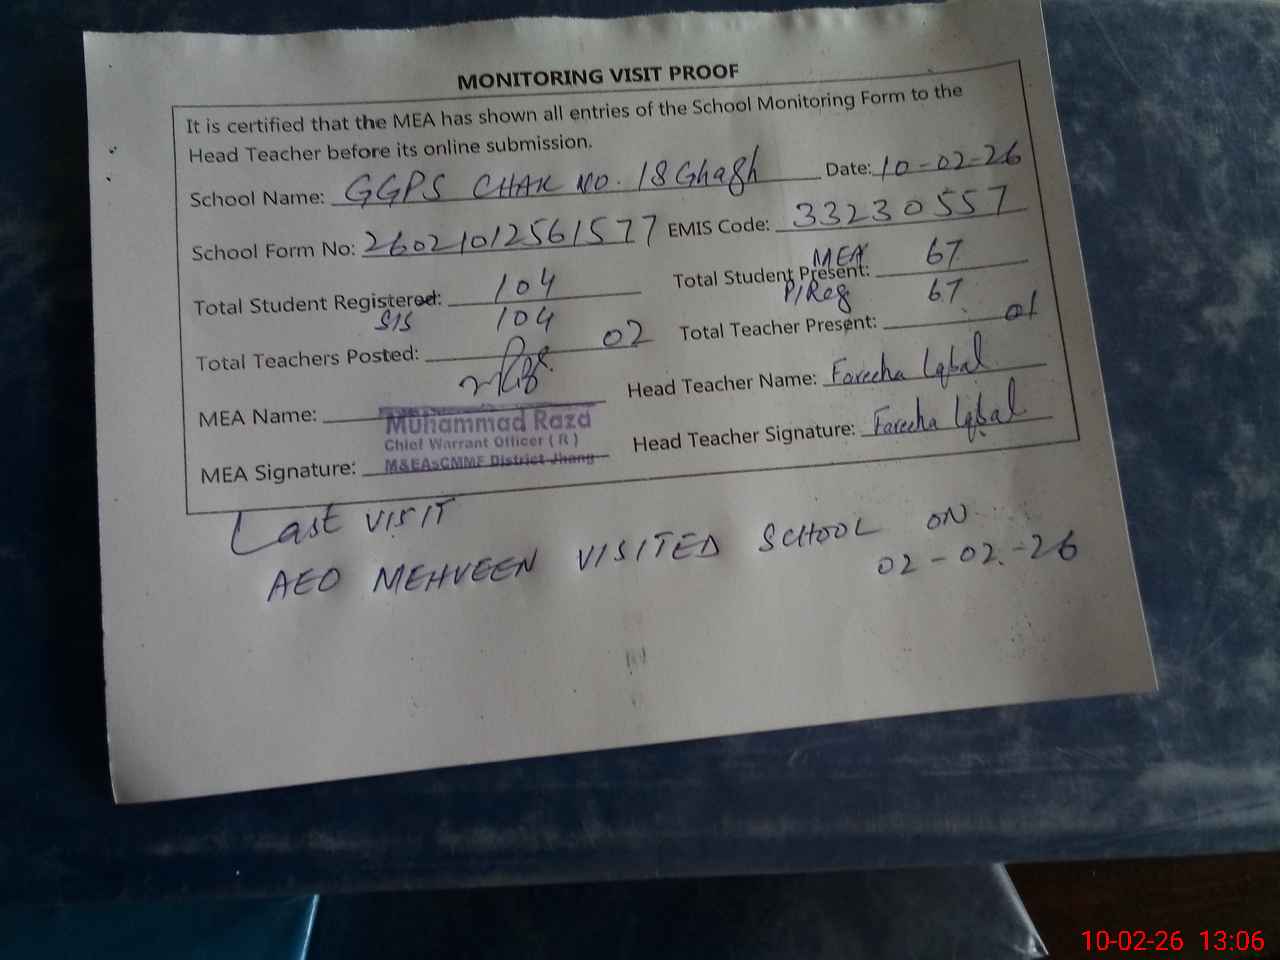 MONITORING VISIT PROOF
It is certified that the MEA has shown all entries of the School Monitoring Form to the
Head Teacher before its online submission.
School Name: GGPS CHAK NO. 18 Ghagh Date: 10-02-26
School Form No: 26021012561577 EMIS Code: 33230557
Total Student Registered: 104 Total Student Present: MEA 67
SIS 104 P/Reg 67
Total Teachers Posted: 02 Total Teacher Present: 01
MEA Name: Head Teacher Name: Fareeha Iqbal
Muhammad Raza
Chief Warrant Officer ( R )
M&EAsCMMF District Jhang
MEA Signature: Head Teacher Signature: Fareeha Iqbal
Last VISIT
AEO MEHVEEN VISITED SCHOOL ON
02-02-26
10-02-26 13:06